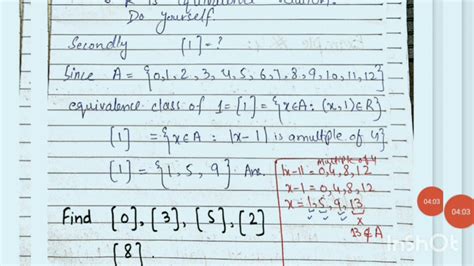 R is equivalence relation.
Do yourself.
Secondly [1] = ?
Since A = {0,1,2,3,4,5,6,7,8,9,10,11,12}
equivalence class of 1 = [1] = {x∈A : (x,1)∈R}
[1] = {x∈A : |x-1| is a multple of 4}
[1] = {1, 5, 9} Ans.
Multiple of 4
|x-1| = 0,4,8,12
x-1 = 0,4,8,12
x = 1,5,9,13
x
13∉A
Find [0], [3], [5], [2]
[8].
04:03
04:03
InShOt